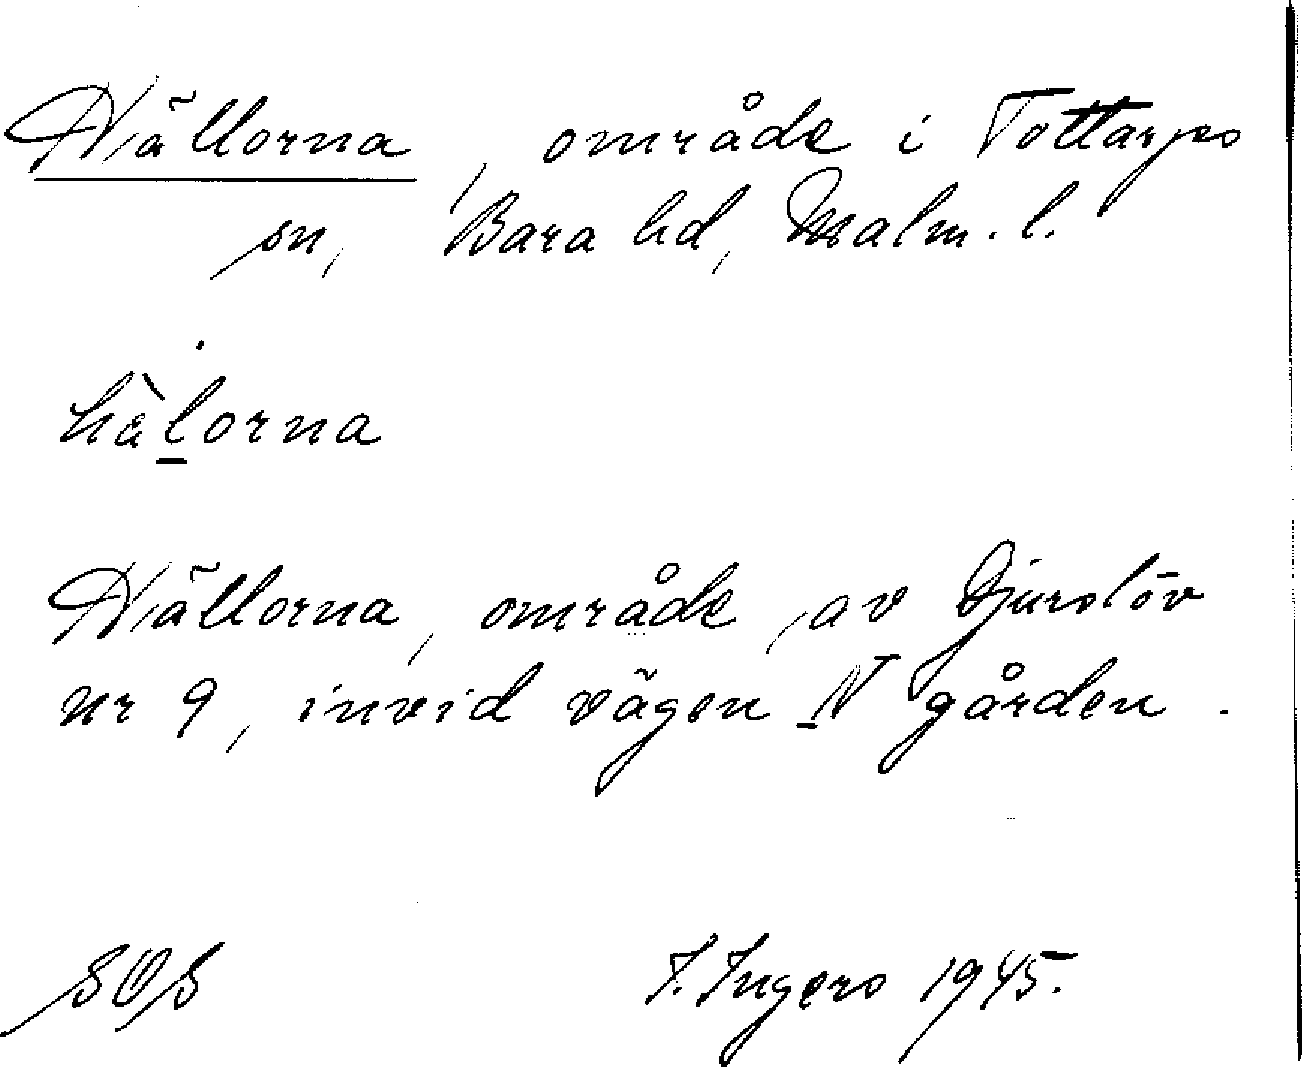 Hällorna, område i Tottarps
sn, Bara hd, Malm. l.
hä̀l̲orna
Hällorna, område av Djurslöv
nr 9, invid vägen N gården.
SOS I. Ingers 1945.